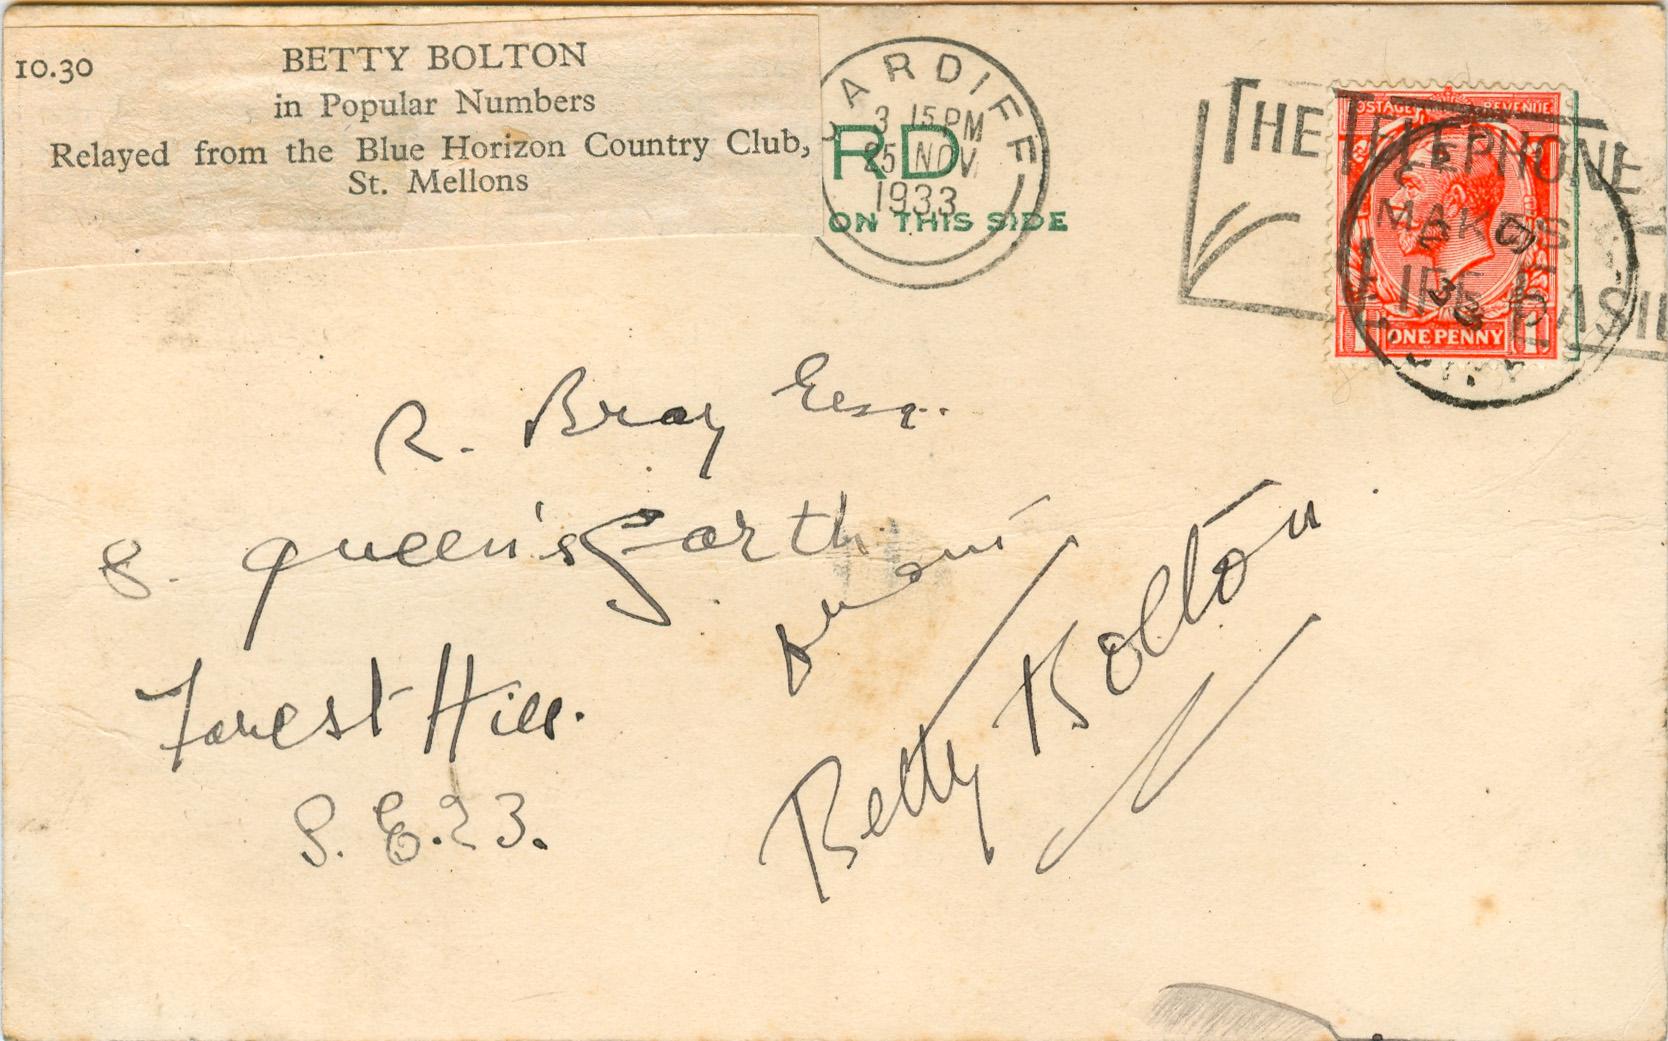 10.30 BETTY BOLTON
in Popular Numbers
Relayed from the Blue Horizon Country Club,
St. Mellons
ARDIFF
3 15 PM
25 NOV
1933
RD
ON THIS SIDE
THE TELEPHONE
MAKES
LIFE EASIE
POSTAGE REVENUE
ONE PENNY
R. Bray Esq.
8. Queen's Garth
Forest Hill.
S.E.23.
Betty Bolton